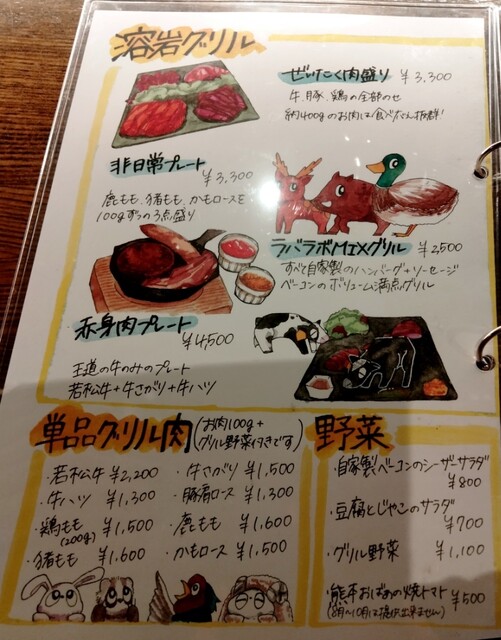 溶岩グリル
ぜいたく肉盛り ¥3,300
牛、豚、鶏の全部のせ
約400gのお肉は食べごたえ抜群!
非日常プレート
¥3,300
鹿もも、猪もも、かもロースを
100gずつの3点盛り
ラバラボMIXグリル ¥2500
すべて自家製のハンバーグ+ソーセージ
ベーコンのボリューム満点グリル
赤身肉プレート
¥4,500
王道の牛のみのプレート
若松牛+牛さがり+牛ハツ
単品グリル肉 (お肉100g+
グリル野菜付きです)
・若松牛 ¥2,200
・牛ハツ ¥1,300
・鶏もも ¥1,500
(200g)
・猪もも ¥1,600
・牛さがり ¥1,500
・豚肩ロース ¥1,300
・鹿もも ¥1,600
・かもロース ¥1,500
野菜
・自家製ベーコンのシーザーサラダ
¥800
・豆腐とじゃこのサラダ
¥700
・グリル野菜 ¥1,100
・熊本おばあの焼トマト ¥500
(8月〜10月は提供出来ません)